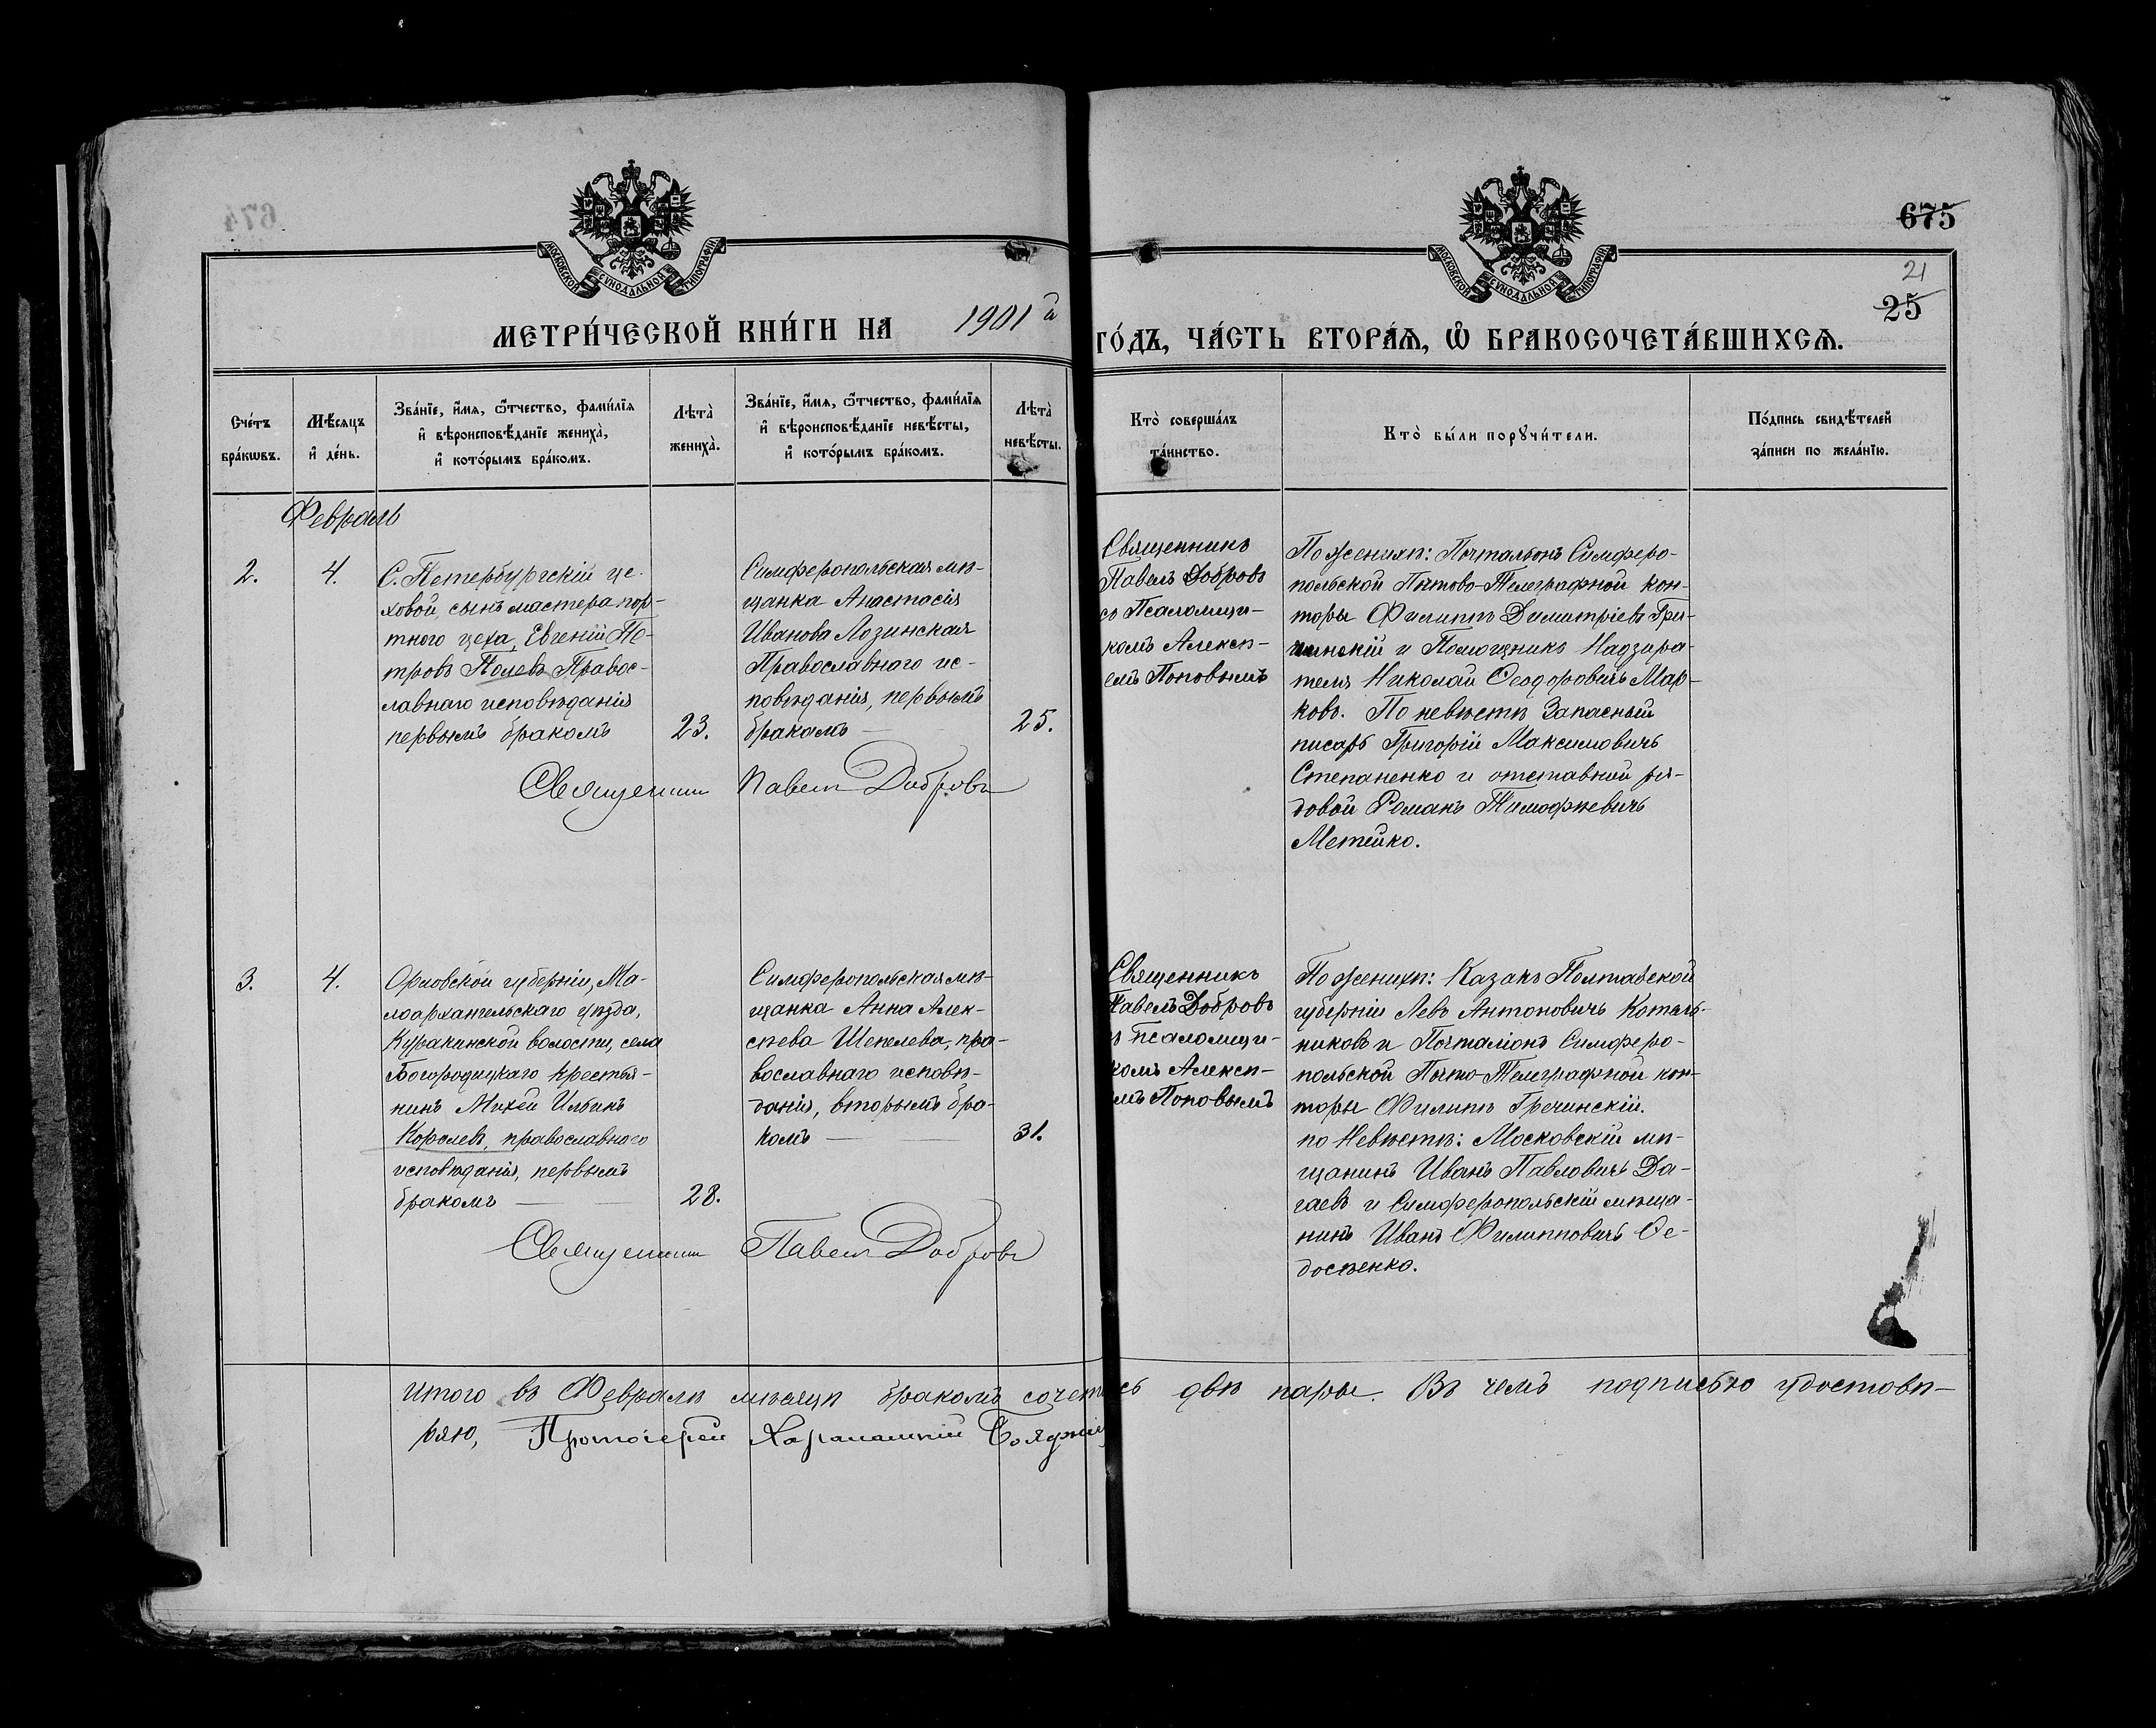 675
21
25
МОСКОВСКОЙ СѴНОДАЛЬНОЙ ТИПОГРАФІИ
МОСКОВСКОЙ СѴНОДАЛЬНОЙ ТИПОГРАФІИ
МЕТРИ́ЧЕСКОЙ КНИ́ГИ НА 1901й ГО́ДЪ, ЧА́СТЬ ВТОРА́Ѧ, Ѽ БРАКОСОЧЕТА́ВШИХСѦ.
Сче́тъ
бра́кѡвъ.
Мѣ́сѧцъ
и҆ де́нь.
Зва́нїе, и҆́мѧ, ѻ҆́тчество, фами́лїѧ
и҆ вѣроисповѣ́данїе жениха̀,
и҆ кото́рымъ бра́комъ.
Лѣта̀
жениха̀.
Зва́нїе, и҆́мѧ, ѻ҆́тчество, фами́лїѧ
и҆ вѣроисповѣ́данїе невѣ́сты,
и҆ кото́рымъ бра́комъ.
Лѣта̀
невѣ́сты.
Кто̀ соверша́лъ
та́инство.
Кто̀ бы́ли порꙋчи́тели.
По́дпись свидѣ́телей
за́писи по жела́нїю.
Февраль
2.
4.
С. Петербургскій це-
ховой, сынъ мастера пор-
тного цеха, Евгеній Пе-
тровъ Полевъ Правос-
лавнаго исповѣданія
первымъ бракомъ
23.
Симферопольская мѣ-
щанка Анастасія
Иванова Лозинская
Православного ис-
повѣданія, первымъ
бракомъ
25.
Священникъ
Павелъ Добровъ
съ Псаломщи-
комъ Алексѣ-
емъ Поповымъ
По женихѣ: Почтальонъ Симферо-
польской Почтово-Телеграфной кон-
торы Филиппъ Димитріевъ Гре-
чинскій и Помощникъ Надзира-
теля Николай Ѳеодоровичъ Мар-
ковъ. По невѣстѣ Запасный
писарь Григорій Максимовичъ
Степаненко и отставной ря-
довой Романъ Тимофѣевичъ
Метейко.
Священникъ Павелъ Добровъ
3.
4.
Орловской губерніи, Ма-
лоархангельскаго уѣзда,
Куракинской волости, села
Богородицкаго крестья-
нинъ Михей Ильинъ
Королевъ, православного
исповѣданія, первымъ
бракомъ
28.
Симферопольская мѣ-
щанка Анна Алек-
сѣева Шепелева, пра-
вославнаго исповѣ-
данія, вторымъ бра-
комъ
31.
Священникъ
Павелъ Добровъ
ъ Псаломщи-
комъ Алексѣ-
мъ Поповымъ
По женихѣ: Казакъ Полтавской
губерніи Левъ Антоновичъ Котель-
никовъ и Почталіонъ Симферо-
польской Почто-Телеграфной кон-
торы Филиппъ Гречинскій.
по Невѣстѣ: Московскій мѣ-
щанинъ Иванъ Павловичъ Да-
гаевъ и Симферопольскій мѣща-
нинъ Иванъ Филипповичъ Ѳе-
досѣенко.
Священникъ Павелъ Добровъ
Итого въ Февралѣ мѣсяцѣ бракомъ сочетась двѣ пары. Въ чемъ подписью удостовѣ-
ряю, Протоіерей Харалампій Бояджи